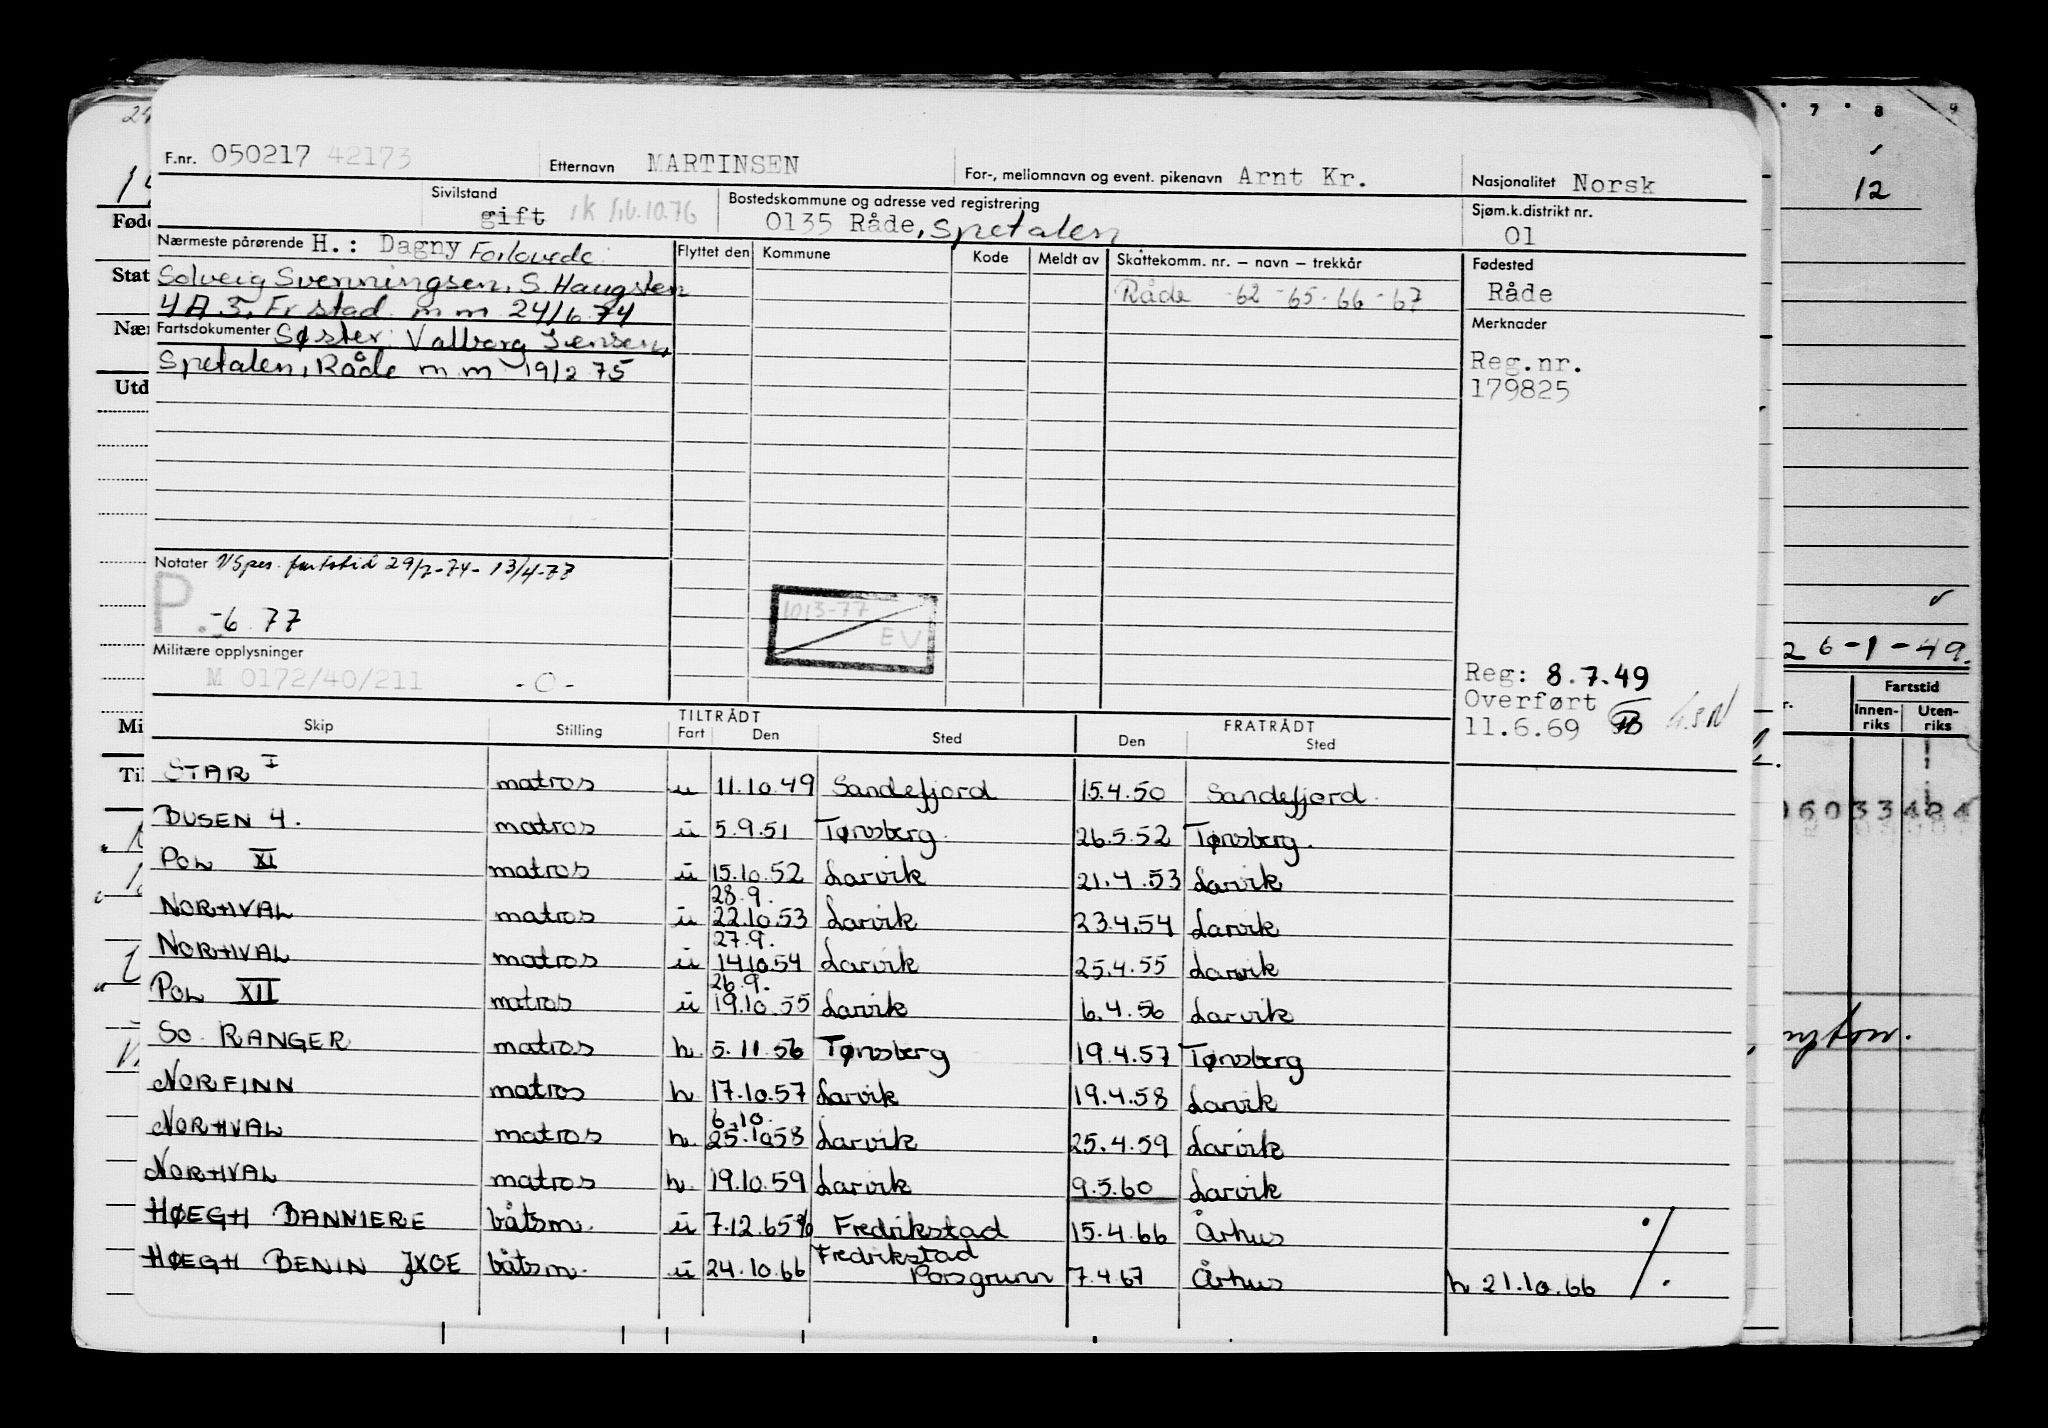 F.nr. 050217 42173 Etternavn MARTINSEN For-, mellomnavn og event. pikenavn Arnt Kr. Nasjonalitet Norsk
Sivilstand gift Bostedskommune og adresse ved registrering 0135 Råde, Spetalen Sjøm.k.distrikt nr. 01
Nærmeste pårørende H.: Dagny Forlovede: Flyttet den Kommune Kode Meldt av Skattekomm. nr. – navn – trekkår Fødested
Solveig Svenningsen, S. Haugsten Råde -62 -65-66-67 Råde
4 A. F.stad m m 24/6 74 Merknader
Fartsdokumenter Søster: Valborg Jensen, Reg.nr.
Spetalen, Råde m m 19/2 75 179825
Notater fartstid 29/7-74- 13/4-77
P. -6 77
1013-77
EV
Militære opplysninger
M 0172/40/211 -0-
Reg: 8.7.49
Overført
11.6.69
TILTRÅDT FRATRÅDT
Skip Stilling Fart Den Sted Den Sted
STAR I matros u 11.10.49 Sandefjord 15.4.50 Sandefjord
BUSEN 4. matros u 5.9.51 Tønsberg 26.5.52 Tønsberg.
POL XI matros u 15.10.52 Larvik 21.4.53 Larvik
28.9.
NORHVAL matros u 22.10.53 Larvik 23.4.54 Larvik
27.9.
NORHVAL matros u 14.10.54 Larvik 25.4.55 Larvik
26.9.
POL XII matros u 19.10.55 Larvik 6.4.56 Larvik
SO. RANGER matros h 5.11.56 Tønsberg 19.4.57 Tønsberg
NORFINN matros h 17.10.57 Larvik 19.4.58 Larvik
6.10.
NORHVAL matros h 25.10.58 Larvik 25.4.59 Larvik
NORHVAL matros h 19.10.59 Larvik 9.5.60 Larvik
HØEGH BANNIERE båtsm. u 7.12.65 Fredrikstad 15.4.66 Århus
Fredrikstad
HØEGH BENIN JXOE båtsm. u 24.10.66 Porsgrunn 7.4.67 Århus h 21.10.66
7 8 9
12
26-1-49.
Fartstid
Innen-riks Uten-riks